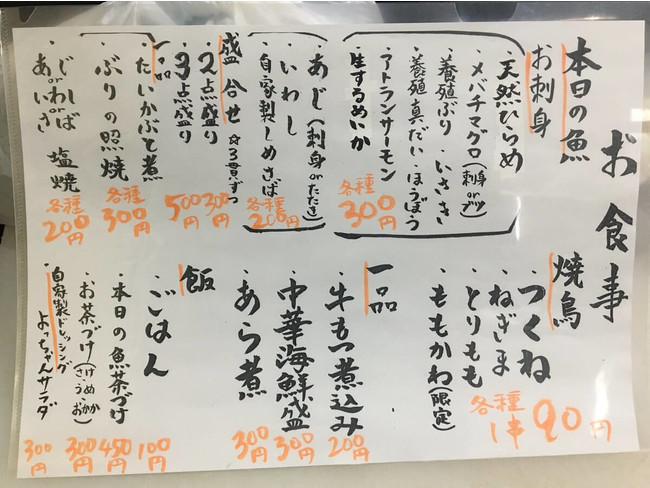 お食事
本日の魚
お刺身
天然ひらめ
・メバチマグロ(刺身orブツ)
・養殖ぶり・いさき
・養殖真だい・ほうぼう
・アトランサーモン
・生するめいか
各種300円
・あじ(刺身orたたき)
・いわし
・自家製しめさば
各種200円
盛合せ ☆3貫ずつ
・2点盛り 300円
・3点盛り 500円
一品
・たいかぶと煮
・ぶりの照焼
各種300円
・あじorいわしorさば 塩焼
各種200円
焼鳥
・つくね
・ねぎま
・とりもも
・ももかわ(限定)
各種1串90円
一品
・牛もつ煮込み 200円
・中華海鮮盛 300円
・あら煮 300円
飯
・ごはん 100円
・本日の魚茶づけ 450円
・お茶づけ(さけ うめ おかか) 300円
・自家製ドレッシング
よっちゃんサラダ 300円